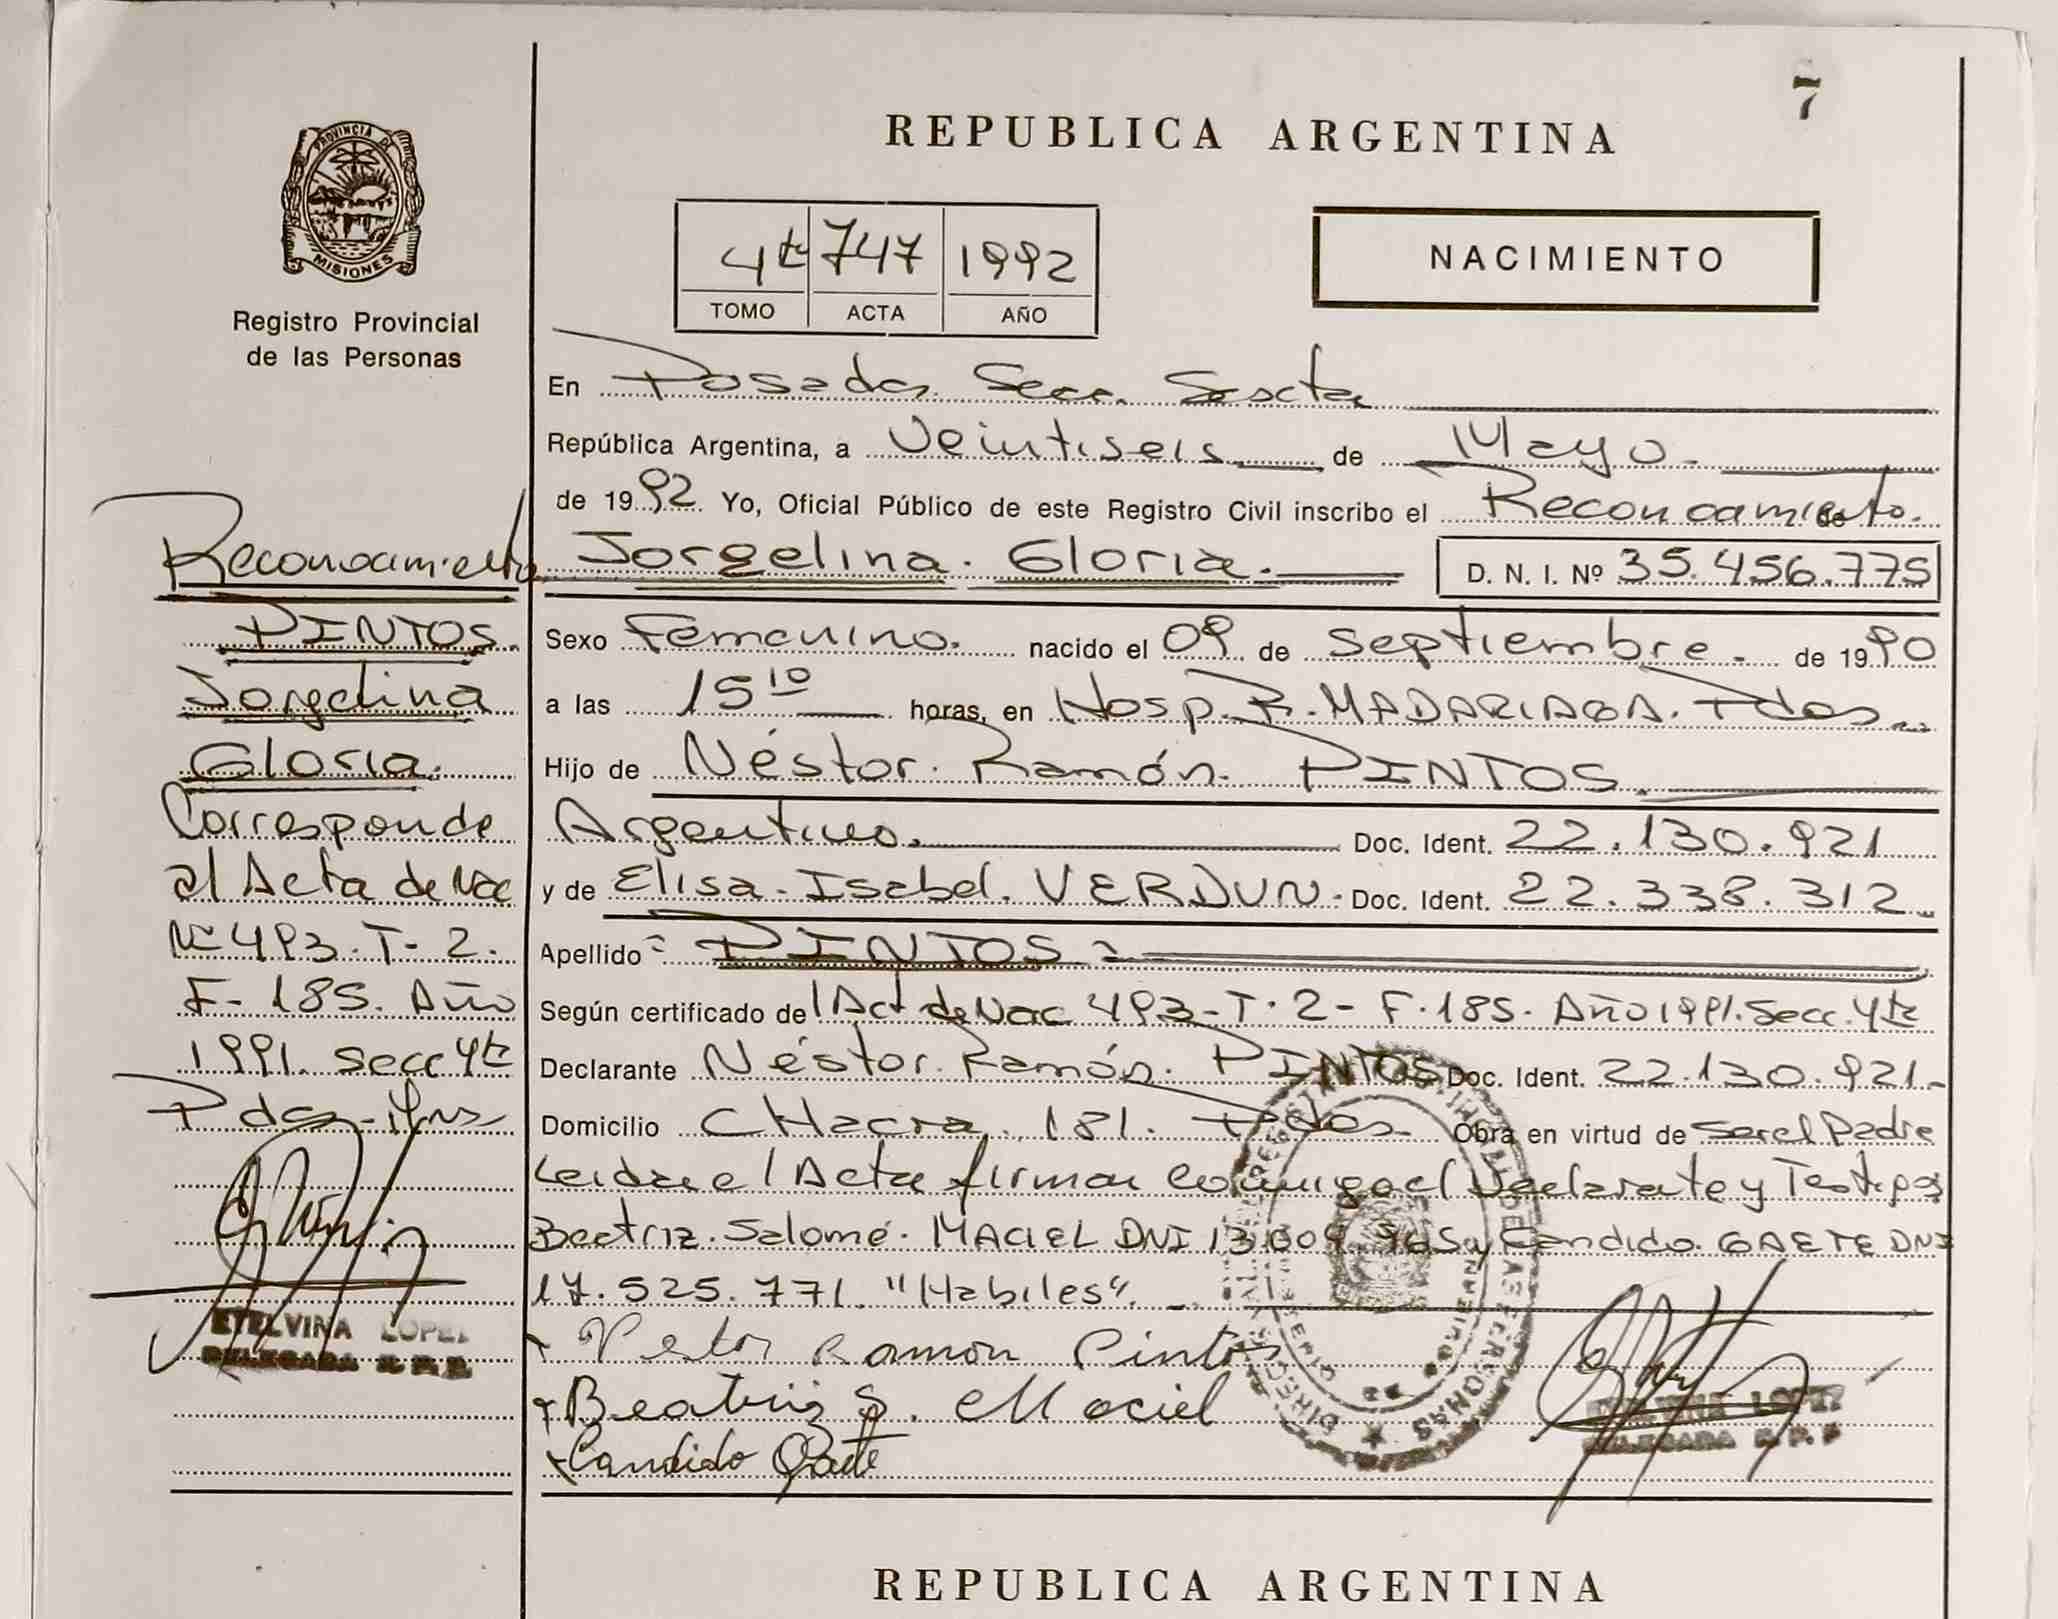 7
REPUBLICA ARGENTINA
PROVINCIA DE
MISIONES
Registro Provincial
de las Personas
4ta 747 1992
TOMO ACTA AÑO
NACIMIENTO
En Posadas Secc. Sexta
República Argentina, a Veintiseis de Mayo.
de 1992. Yo, Oficial Público de este Registro Civil inscribo el Reconocimiento.
Jorgelina. Gloria. D. N. I. Nº 35.456.775
Sexo Femenino. nacido el 09 de septiembre. de 1990
a las 15 10 horas, en Hosp. R. MADARIAGA. Pdas.
Hijo de Néstor. Ramón. PINTOS.
Argentino. Doc. Ident. 22.130.921
y de Elisa. Isabel. VERDUN. Doc. Ident. 22.338.312
Apellido = PINTOS =
Según certificado del Act de Nac 493-T.2- F.185. Año 1991. Secc. 4ta
Declarante Néstor. Ramón. PINTOS Doc. Ident. 22.130.921-
Domicilio CHacra. 181. Pdas. Obra en virtud de Ser el Padre
Leida el Acta firman conmigo el Declarante y Testigos
Beatriz. Salomé. MACIEL DNI 13.009. y Candido. GAETE DNI
17.525.771. "Habiles".
Nestor Ramon Pintos
Beatriz S. Maciel
Candido Gaete
Reconocimiento
PINTOS.
Jorgelina
Gloria.
Corresponde
al Acta de Nac
Nº 493-T-2.
F-185. Año
1991. secc 4ta
Pdas-Mnes
ETELVINA LOPEZ
DELEGADA R.P.P.
ETELVINA LOPEZ
DELEGADA R.P.P
REPUBLICA ARGENTINA